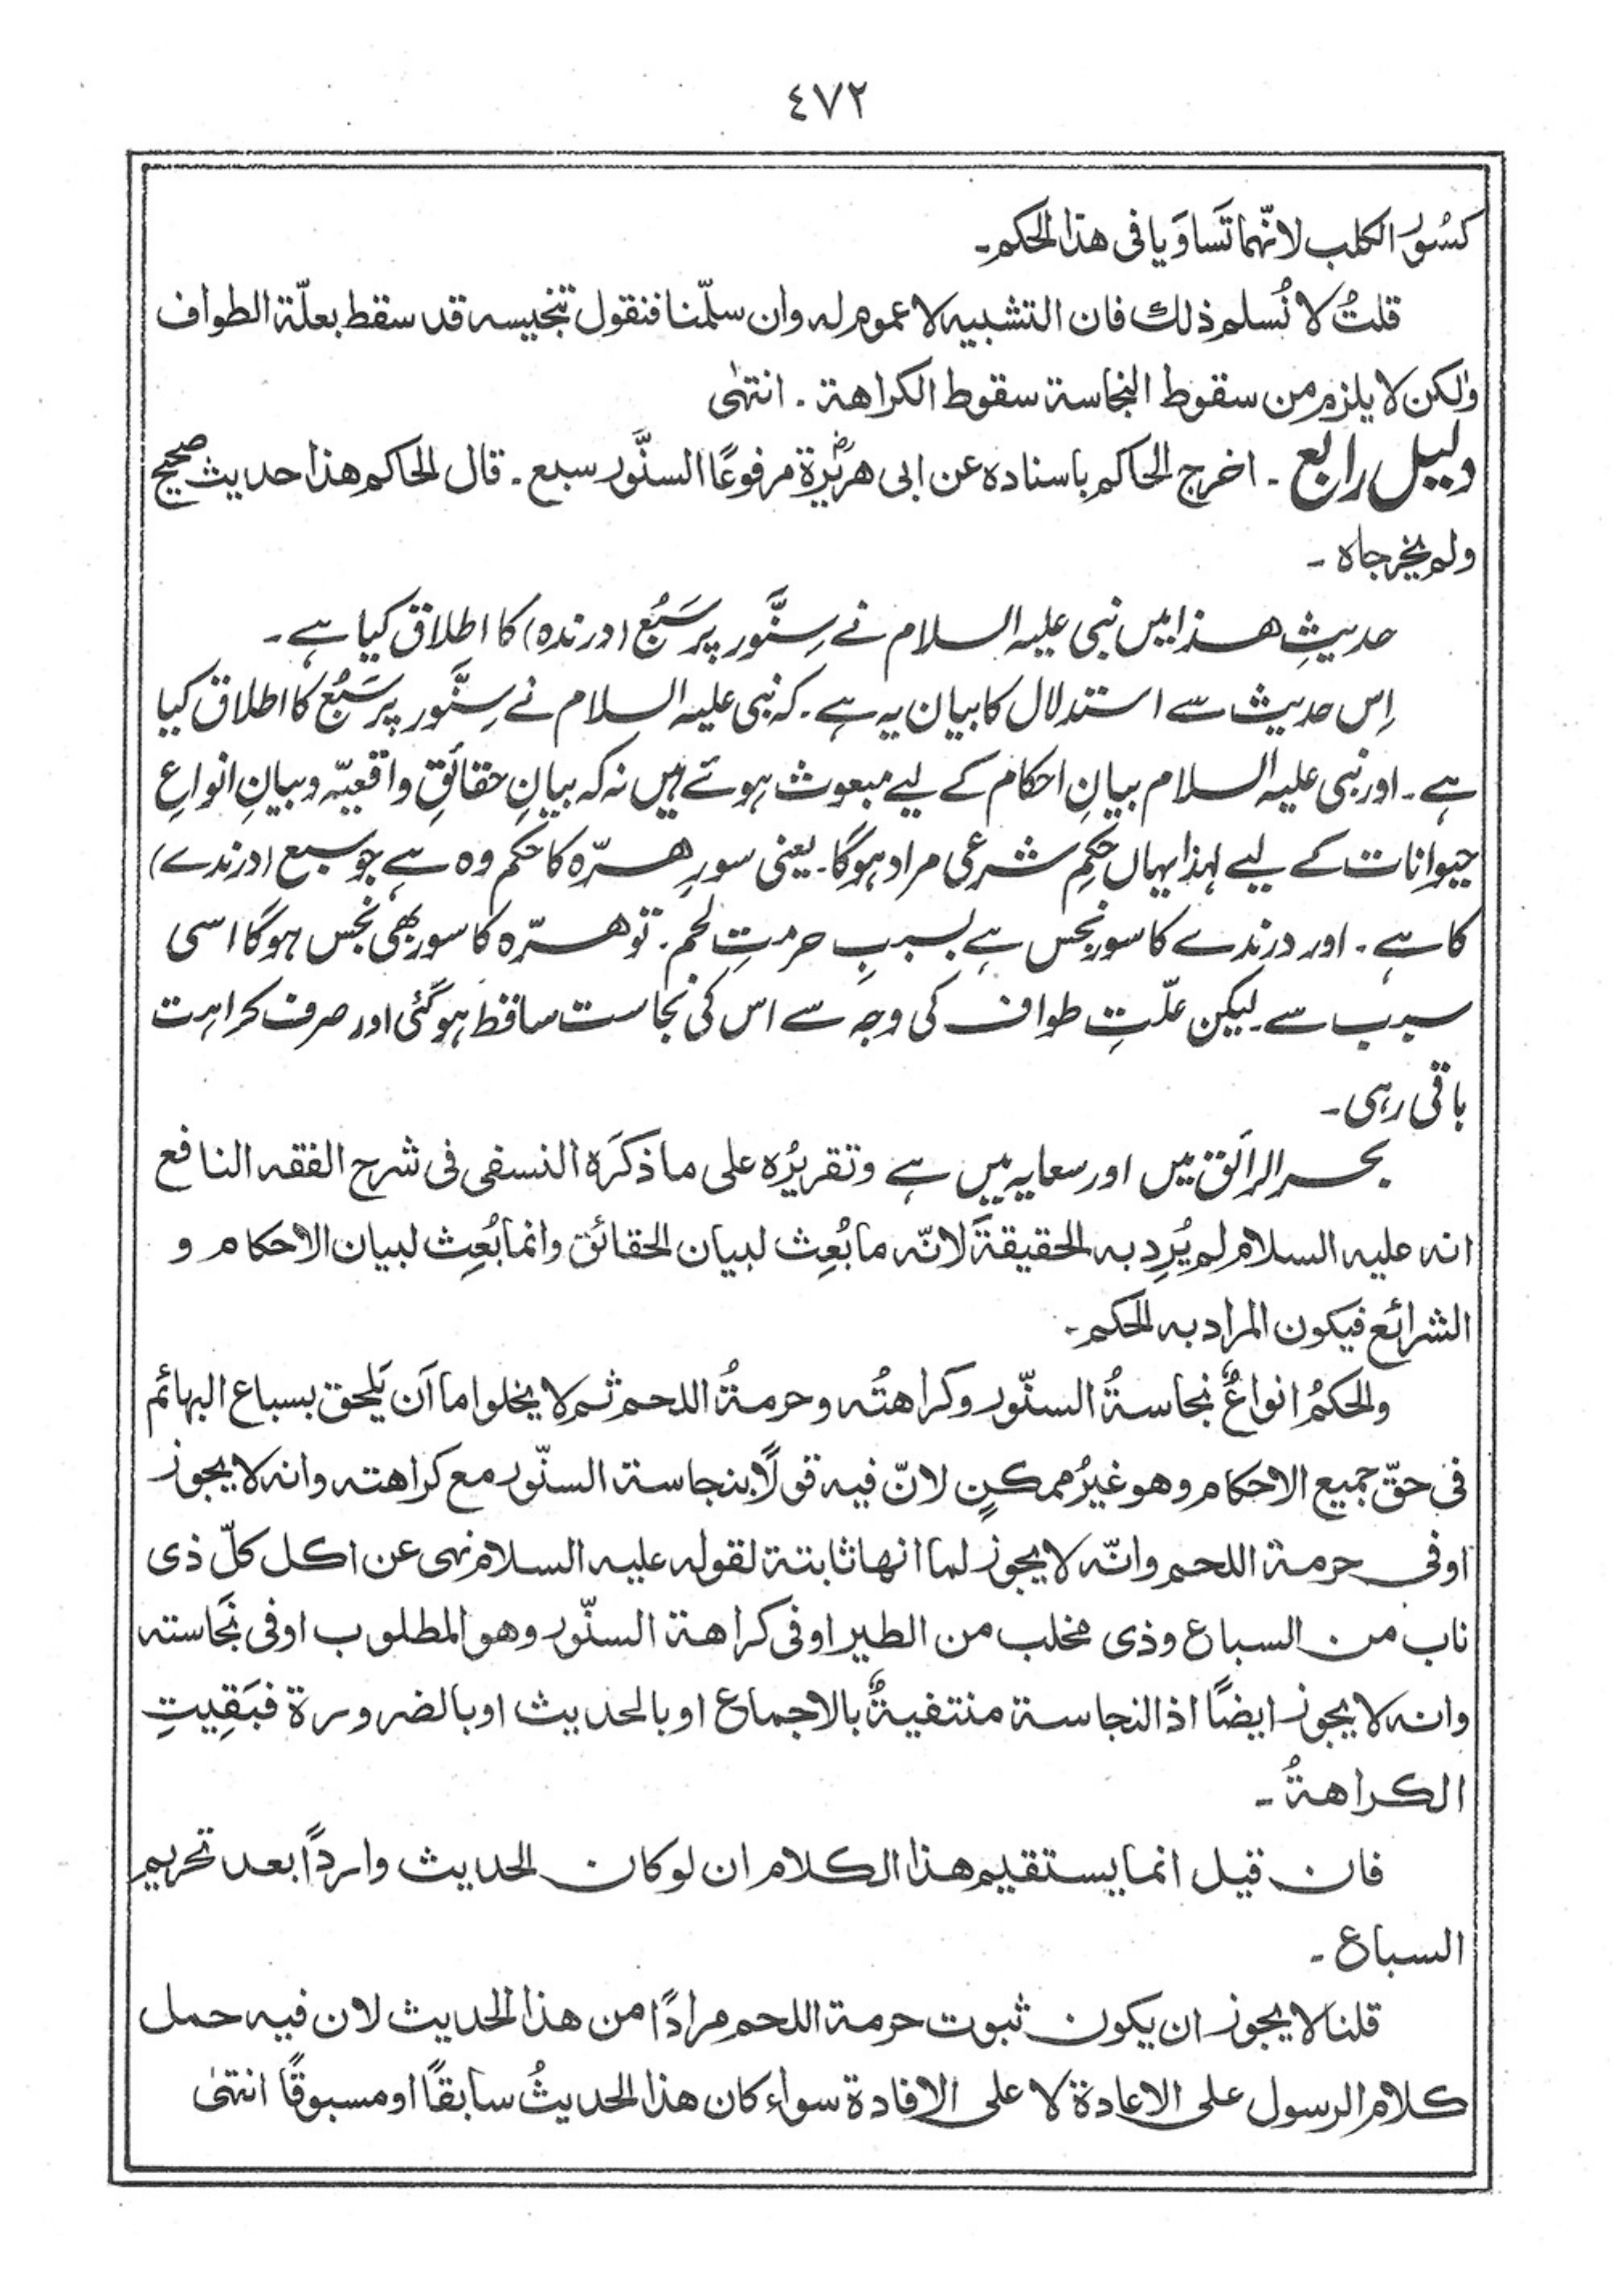 ٤٧٢
كسُور الكلب لانّهما تَساوَيا فى هذا الحكم۔
قلتُ لا نُسلم ذلك فان التشبيه لا عموم له وان سلّمنا فنقول تنجيسه قد سقط بعلّة الطواف
ولكن لا يلزم من سقوط النجاسة سقوط الكراهة ۔ انتهٰى
دليل رابع ۔ اخرج الحاكم باسناده عن ابى هريرة رضؓ مرفوعًا السنَّور سبع ۔ قال الحاكم هذا حديث صحيح
ولم يخرجاه ۔
حدیثِ ھذا میں نبی علیہ السلام نے سِنَّور پر سَبُع (درندہ) کا اطلاق کیا ہے ۔
اِس حدیث سے استدلال کا بیان یہ ہے ۔ کہ نبی علیہ السلام نے سِنَّور پر سَبُع کا اطلاق کیا
ہے ۔ اور نبی علیہ السلام بیانِ احکام کے لیے مبعوث ہوئے ہیں نہ کہ بیانِ حقائقِ واقعیّہ و بیانِ انواعِ
حیوانات کے لیے لہذا یہاں حکمِ شرعی مراد ہوگا ۔ یعنی سورِ ھرّہ کا حکم وہ ہے جو سبع (درندے)
کا ہے ۔ اور درندے کا سور نجس ہے بسببِ حرمتِ لحم ۔ تو ھرّہ کا سور بھی نجس ہوگا اسی
سبب سے ۔ لیکن علّتِ طواف کی وجہ سے اس کی نجاست ساقط ہوگئی اور صرف کراہت
باقی رہی ۔
بحر الرائق میں اور سعایہ میں ہے وتقريرُه على ما ذكرَه النسفى فى شرح الفقه النافع
انه عليه السلام لم يُرِد به الحقيقةَ لانّه ما بُعِث لبيان الحقائق وانما بُعِث لبيان الاحكام و
الشرائع فيكون المراد به الحكم ۔
والحكمُ انواعٌ نجاسةُ السنّور وكراهتُه وحرمةُ اللحم ثم لا يخلوا ما اَن يَلحق بسباع البهائم
فى حقّ جميع الاحكام وهو غيرُ ممكنٍ لانّ فيه قولًا بنجاسة السنّور مع كراهته وانه لا يجوز
اوفى حرمة اللحم وانّه لا يجوز لما انها ثابتة لقوله عليه السلام نهى عن اكل كلّ ذى
ناب من السباع وذى مخلب من الطير اوفى كراهة السنّور وهو المطلوب اوفى نَجاسته
وانه لا يجوز ايضًا اذ النجاسة منتفيةٌ بالاجماع او بالحديث او بالضرورة فبَقِيتِ
الكراهةُ ۔
فان قيل انما يستقيم هذا الكلام ان لو كان الحديث واردًا بعد تحريم
السباع ۔
قلنا لا يجوز ان يكون ثبوت حرمة اللحم مرادًا من هذا الحديث لان فيه حمل
كلام الرسول على الاعادة لا على الافادة سواء كان هذا الحديثُ سابقًا او مسبوقًا انتهٰى